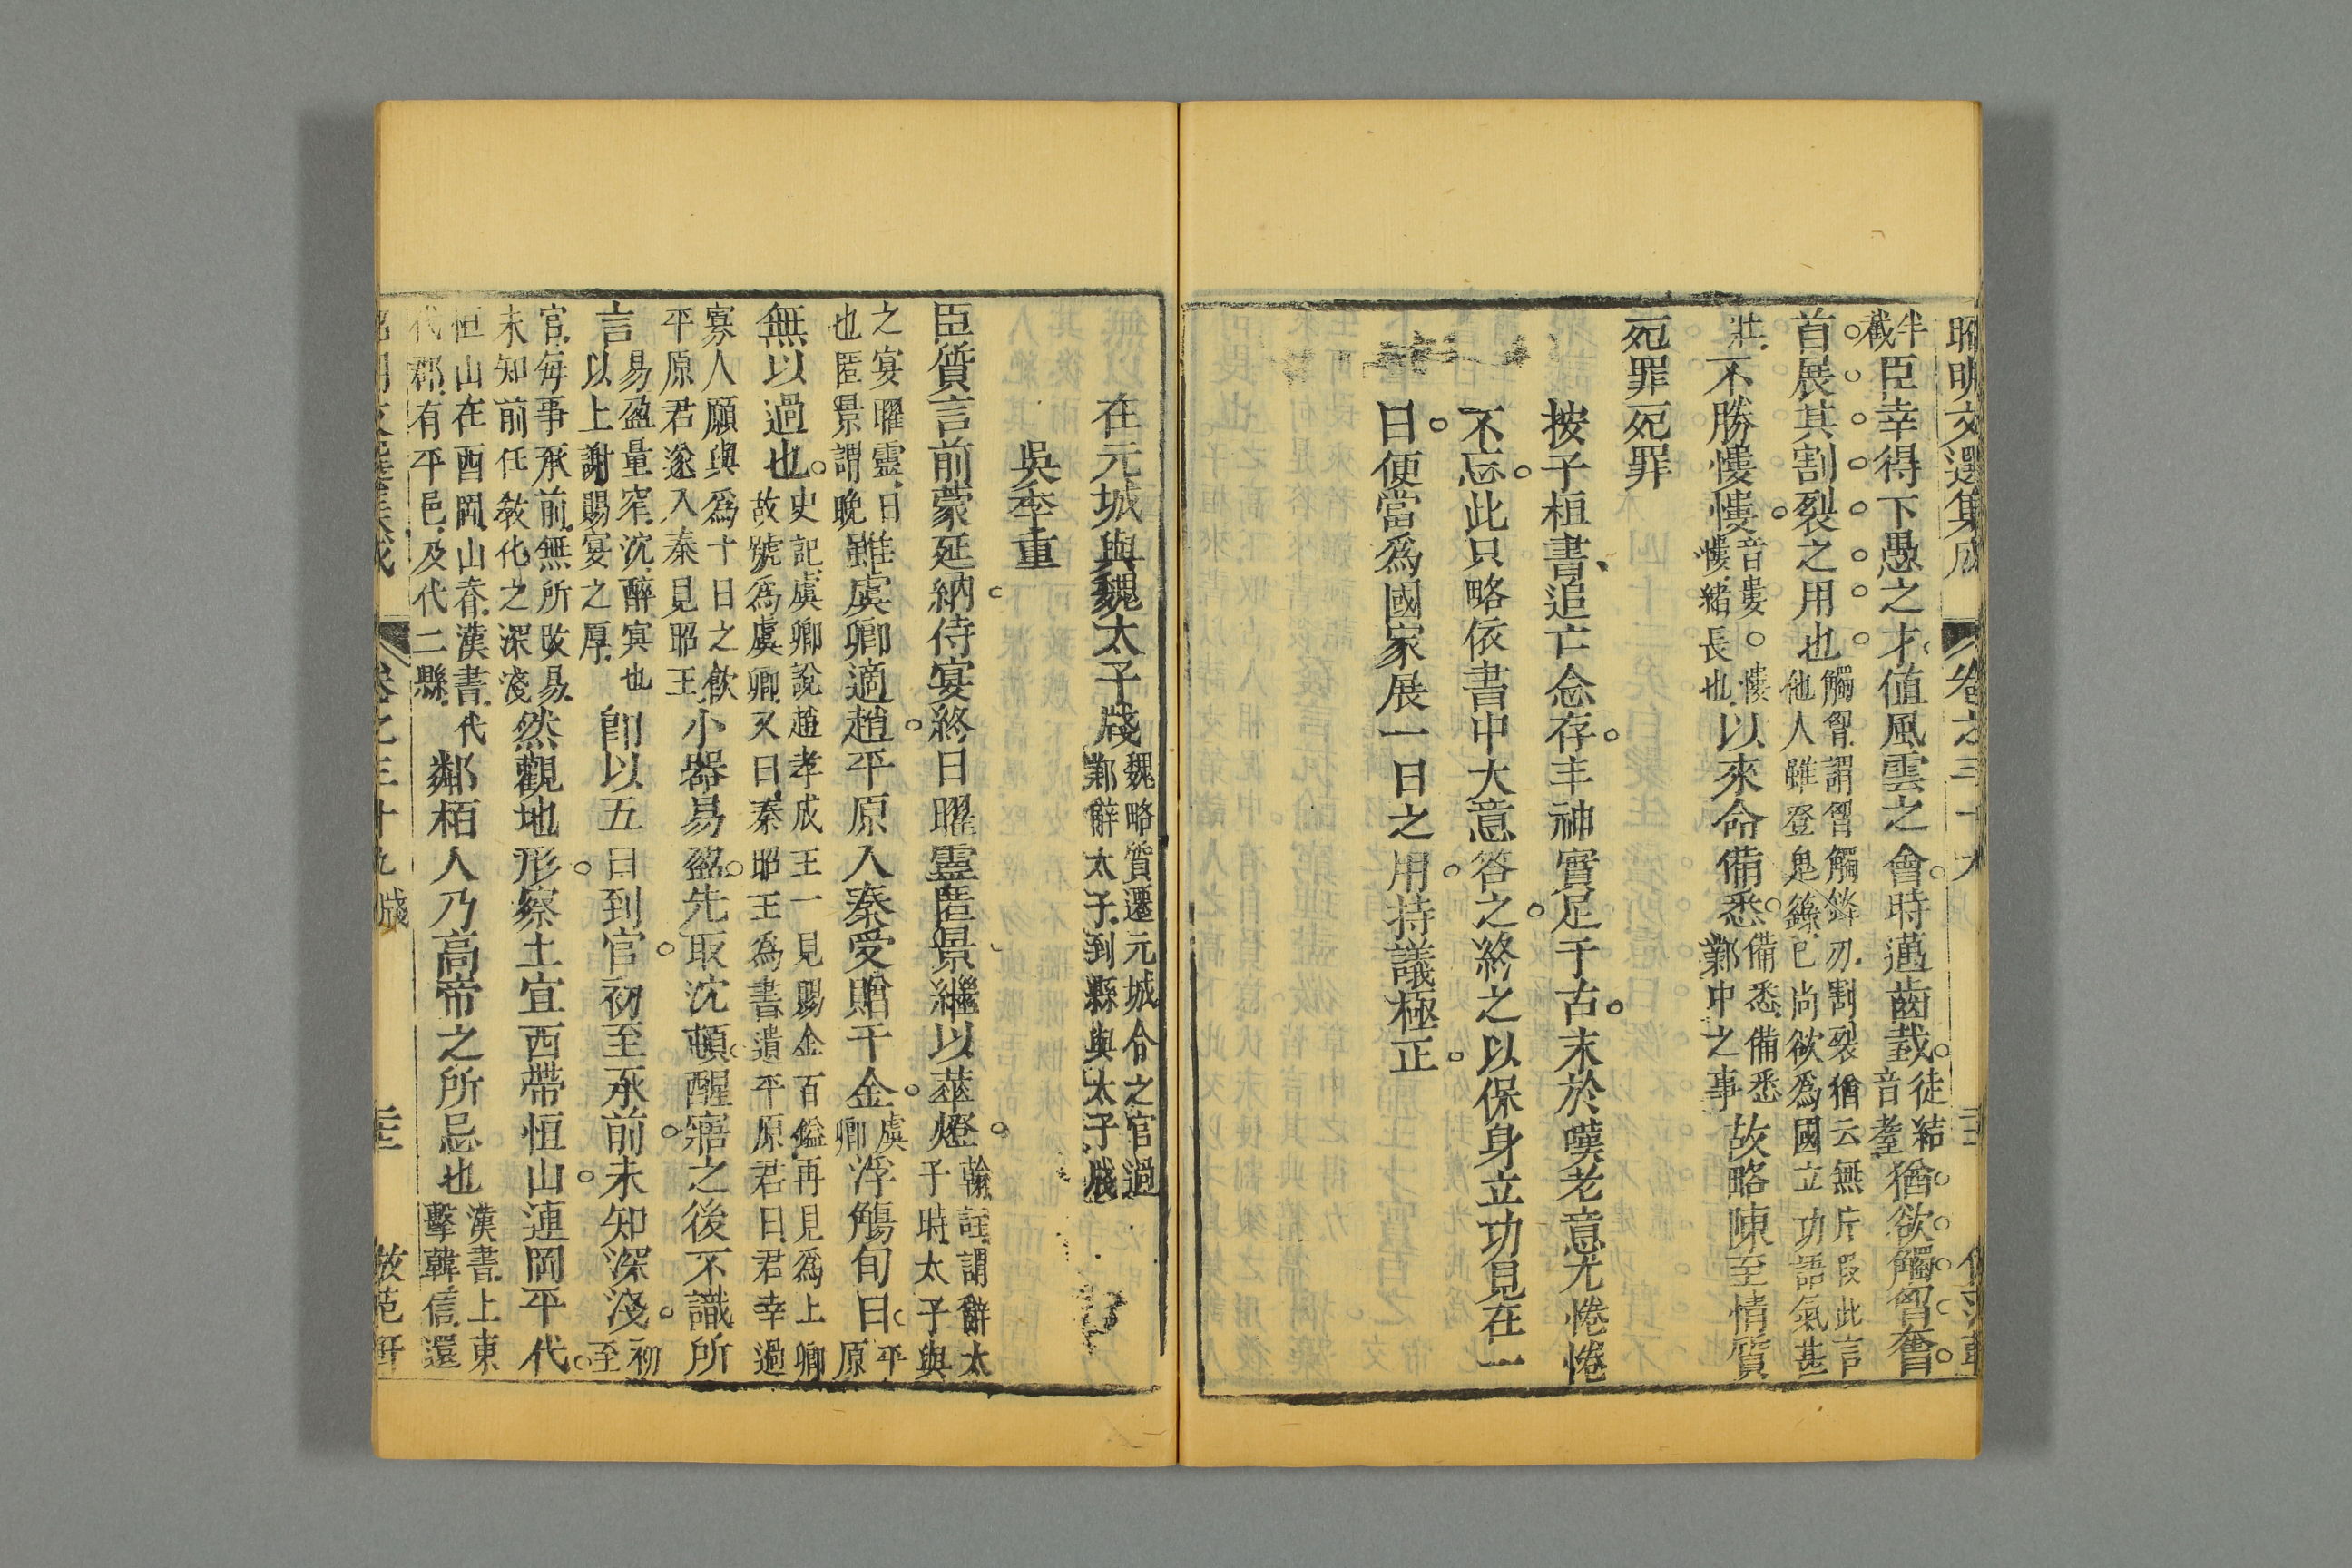 昭明文選集成 卷之三十九
截半臣幸得下愚之才值風雲之會時邁齒耋徒結音耋猶欲觸匈奮
首展其割裂之用也觸匈謂匈觸鋒刃割裂猶云無片段此言他人雖登鬼錄已尚欲爲國立功語氣甚
壯不勝慺慺音婁○慺慺緒長也以來命備悉備悉備悉鄴中之事故略陳至情質
死罪死罪
按子桓書追亡念存丰神實足千古末於嘆老意尤惓惓
不忘此只略依書中大意答之終之以保身立功見在一
日便當爲國家展一日之用持議極正
在元城與魏太子牋魏略質遷元城令之官過鄴辭太子到縣與太子牋
吳季重
臣質言前蒙延納侍宴終日曜靈匿景繼以華燈翰註謂辭太子時太子與
之宴曜靈日也匿景謂晚雖虞卿適趙平原入秦受贈千金虞卿浮觴旬日平原
無以過也史記虞卿說趙孝成王一見賜金百鎰再見爲上卿故號爲虞卿又曰秦昭王爲書遺平原君曰君幸過
寡人願與爲十日之飲平原君遂入秦見昭王小器易盈先取沈頓醒寤之後不識所
言易盈量窄沈醉寘也以上謝賜宴之厚卽以五日到官初至承前未知深淺初至
官每事承前無所改易未知前任敎化之深淺然觀地形察土宜西帶恒山連岡平代
恒山在西岡山脊漢書代代郡有平邑及代二縣鄰栢人乃高帝之所忌也漢書上東擊韓信還
昭明文選集成 卷之三十九 牋